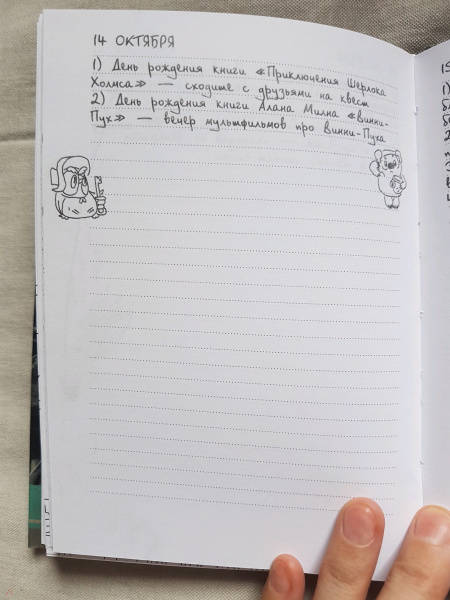 14 ОКТЯБРЯ
1) День рождения книги «Приключения Шерлока
Холмса» — сходите с друзьями на квест
2) День рождения книги Алана Милна «Винни-
Пух» — вечер мультфильмов про Винни-Пуха